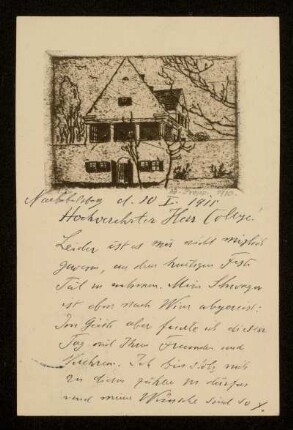 Neubabelsberg d. 10 I. 1911
Hochverehrter Herr College.
Leider ist es mir nicht möglich
gewesen, an dem heutigen Fest
Teil zu nehmen. Mein Schwager
ist eben nach Wien abgereist:
Im Geiste aber feierte ich diesen
Tag mit Ihren Freunden und
Verehrern. Ich bin stolz mich
zu dem zählen zu dürfen
und meine Wünsche sind so